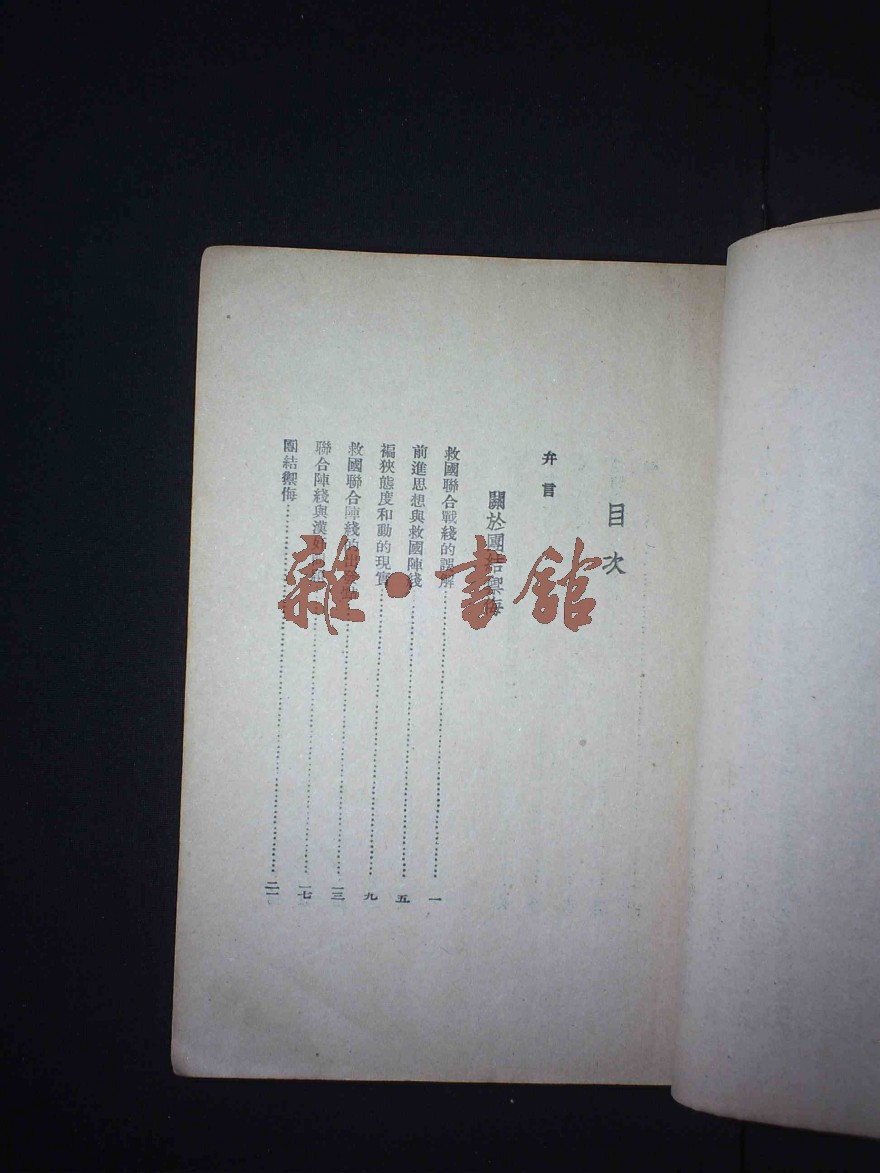 目次
弁言
關於團結禦侮
救國聯合戰綫的誤解 一
前進思想與救國陣綫 五
褊狹態度和動的現實 九
救國聯合陣綫的 一三
聯合陣綫與漢奸 一七
團結禦侮 二一
雜·書館